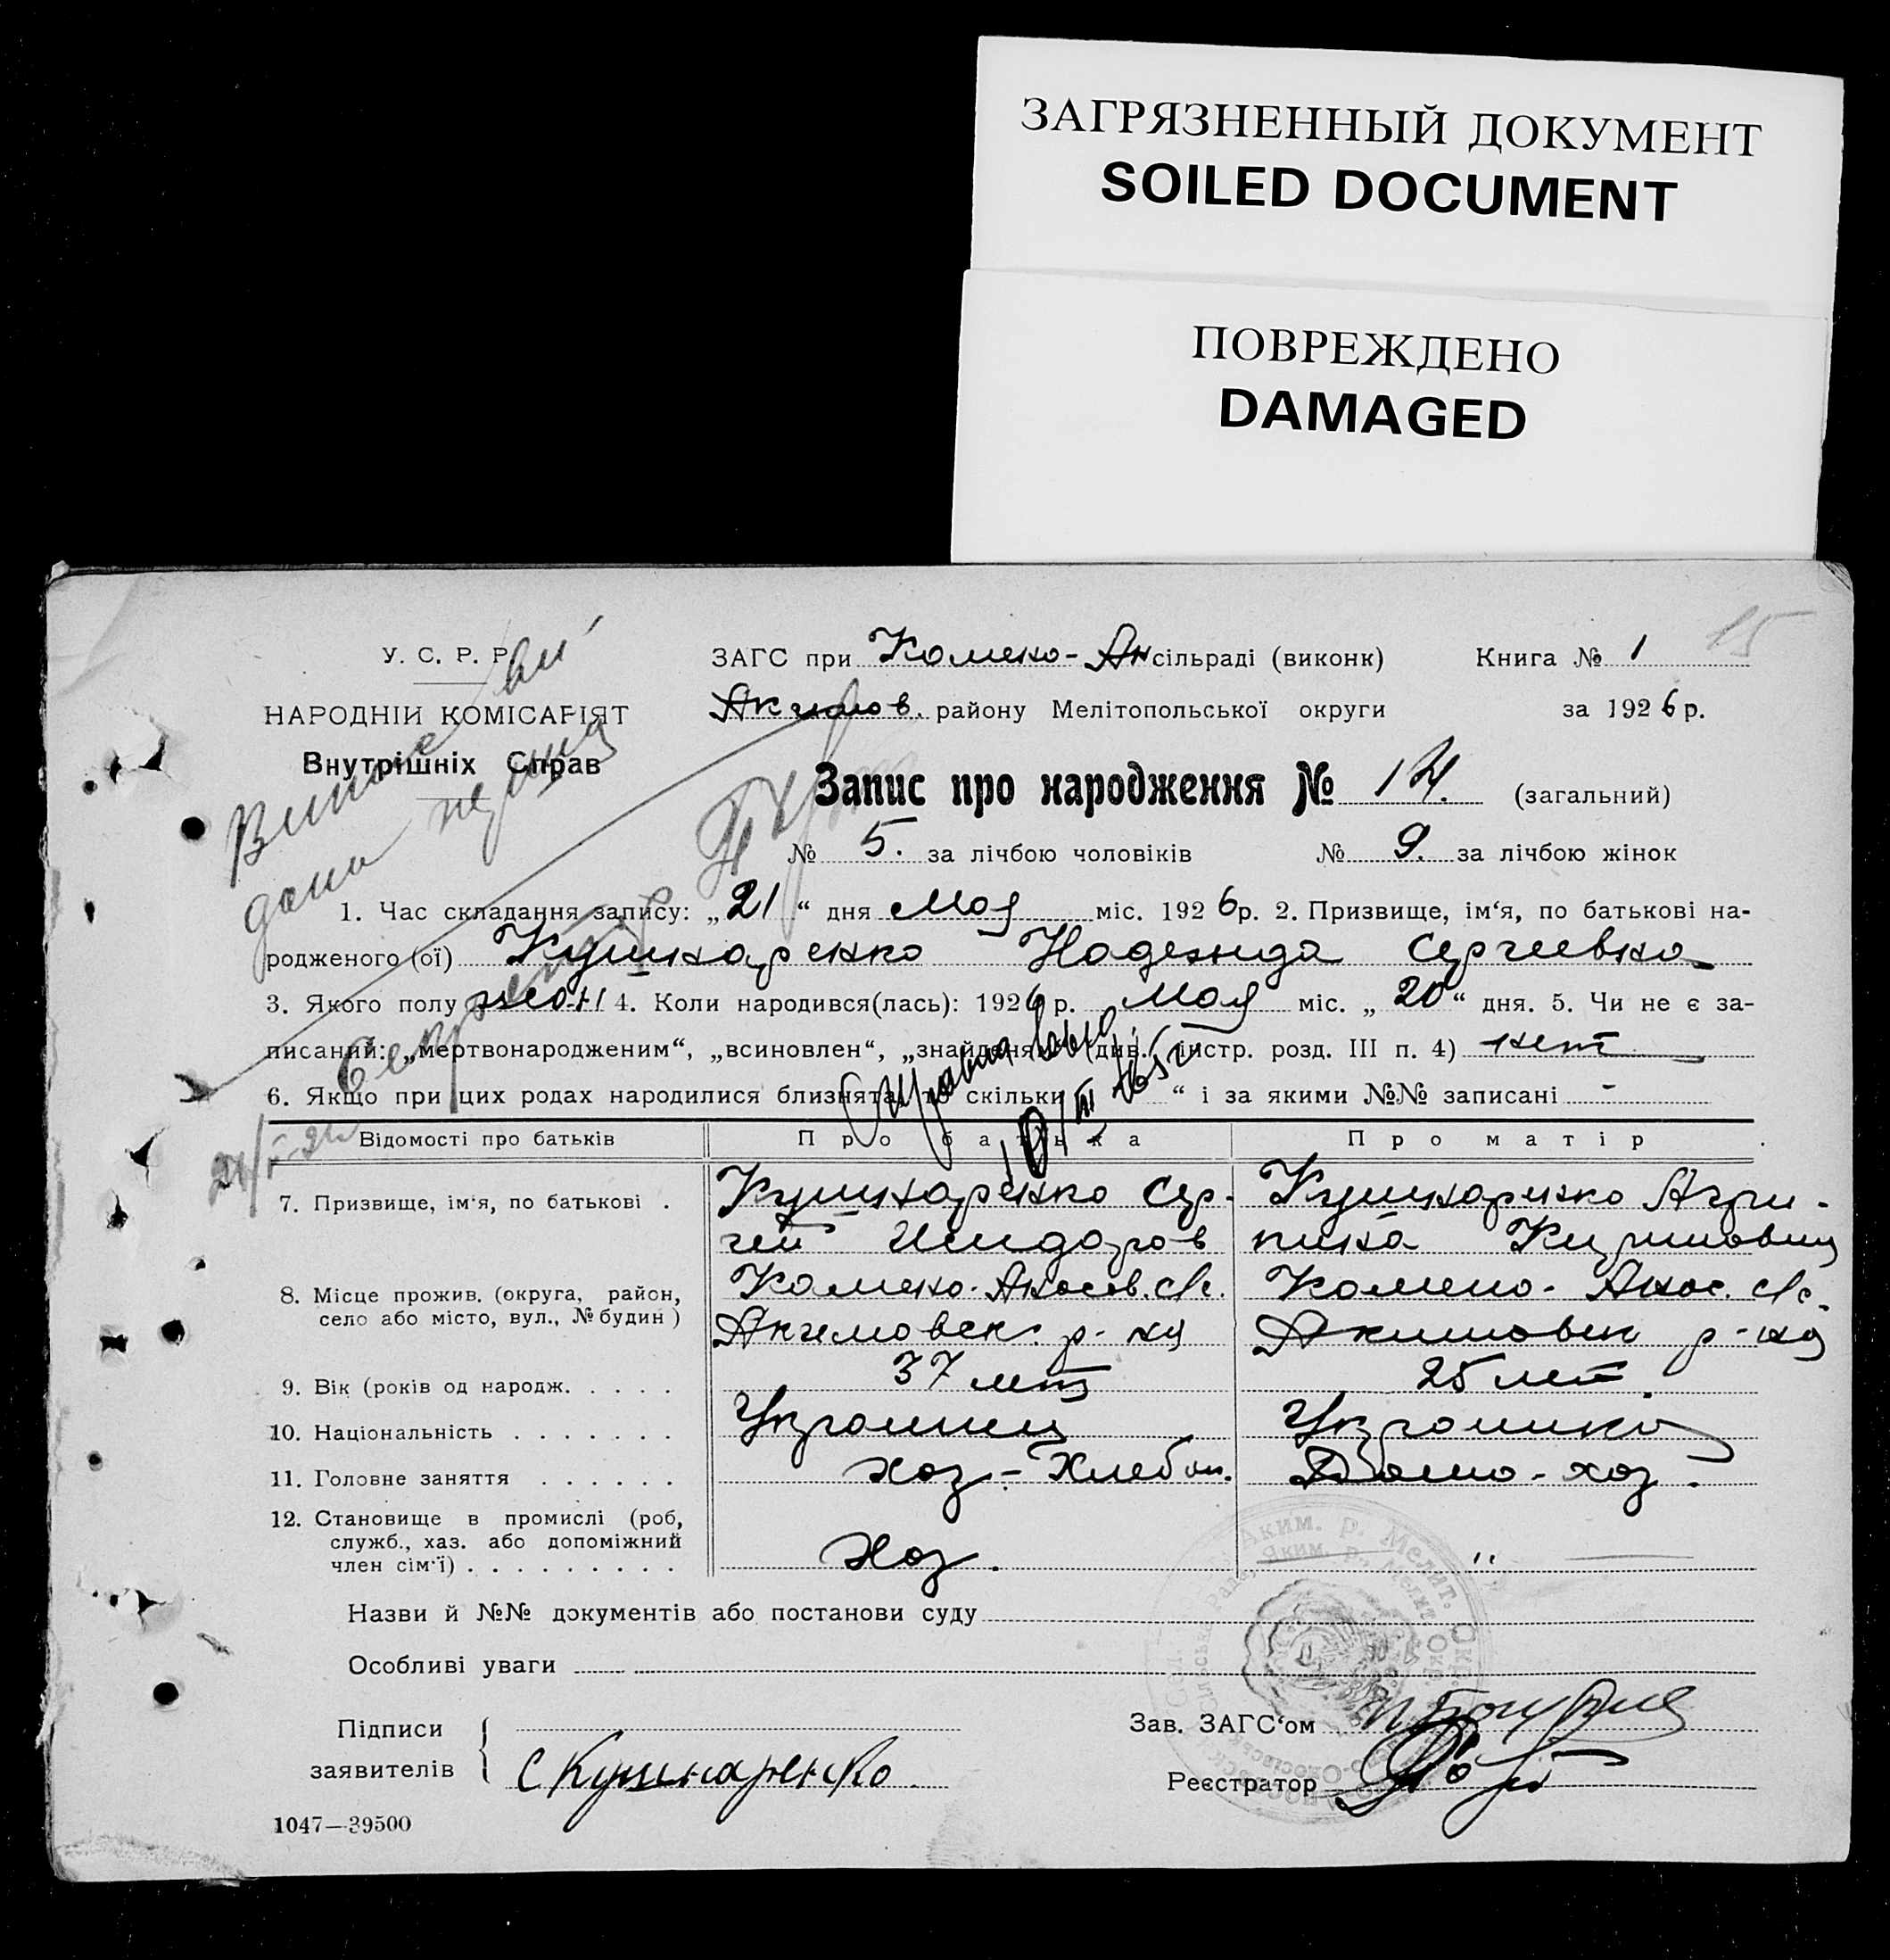 ЗАГРЯЗНЕННЫЙ ДОКУМЕНТ
SOILED DOCUMENT
ПОВРЕЖДЕНО
DAMAGED
15
У. С. Р. Р.
НАРОДНІЙ КОМІСАРІЯТ
Внутрішніх Справ
ЗАГС при Камено-Ан сільраді (виконк) Книга № 1
Акимов. району Мелітопольської округи за 1926 р.
Запис про народження № 14. (загальний)
№ 5. за лічбою чоловіків № 9. за лічбою жінок
1. Час складання запису: „21“ дня Мая міс. 1926 р. 2. Призвище, ім‘я, по батькові на-
родженого (ої) Кушнаренко Надежда Сергеевна
3. Якого полу жен 4. Коли народився(лась): 1926 р. Мая міс. „20“ дня. 5. Чи не є за-
писаний: „мертвонародженим“, „всиновлен“, „знайденям“ (див. інстр. розд. III п. 4) нет
6. Якщо при цих родах народилися близнята, то скільки “ і за якими №№ записані -
Відомості про батьків Про батька Про матір
7. Призвище, ім‘я, по батькові . Кушнаренко Сер- Кушнаренко Агри-
гей Исидоров пина
8. Місце прожив. (округа, район, Камено-Аносов. с/с. Камено-Анос. с/с.
село або місто, вул., № будин) Акимовск. р-на Акимовск р-на
9. Вік (років од народж. . . . . 37 лет 25 лет.
10. Національність . . . . . . . Украинец Украинка
11. Головне заняття . . . . . . Хоз-Хлебоп. Домо-хоз.
12. Становище в промислі (роб,
служб., хаз. або допоміжний
член сім‘ї) . . . . . . . . . Хоз. "
Назви й №№ документів або постанови суду
Особливі уваги
Підписи
заявителів С Кушнаренко
Зав. ЗАГС‘ом
Реєстратор
1047—39500